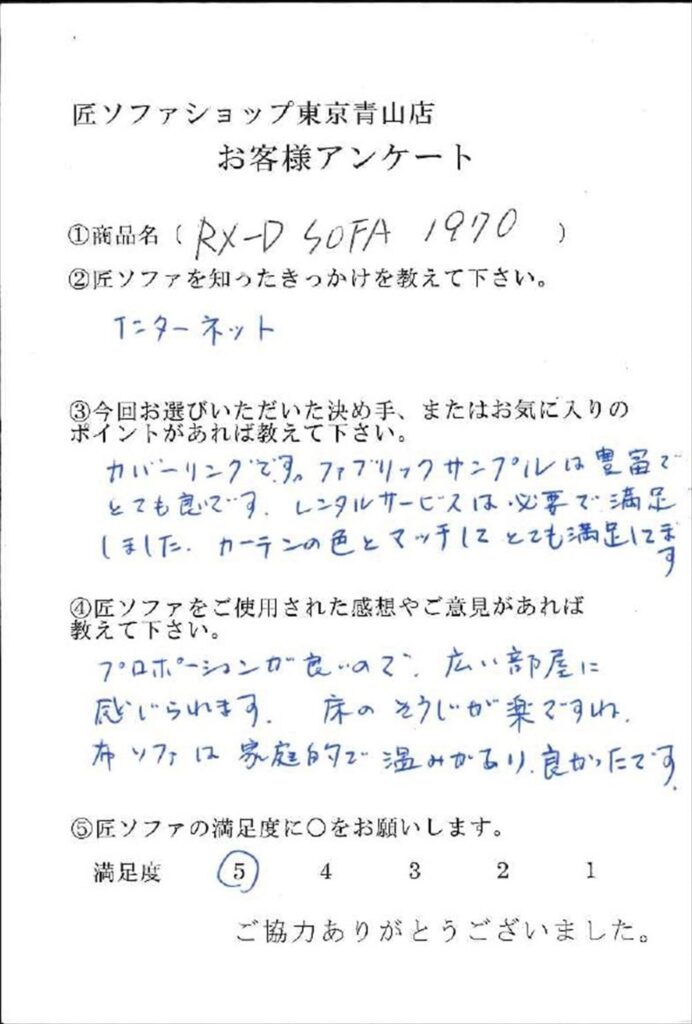 匠ソファショップ東京青山店
お客様アンケート
①商品名（ RX-D SOFA 1970 ）
②匠ソファを知ったきっかけを教えて下さい。
インターネット
③今回お選びいただいた決め手、またはお気に入りの
ポイントがあれば教えて下さい。
カバーリングです。ファブリックサンプルは豊富で
とても良です。レンタルサービスは必要で満足
しました。カーテンの色とマッチしてとても満足してます
④匠ソファをご使用された感想やご意見があれば
教えて下さい。
プロポーションが良いので、広い部屋に
感じられます。 床のそうじが楽ですね。
布ソファは家庭的で温みがあり、良かったです
⑤匠ソファの満足度に○をお願いします。
満足度 5 4 3 2 1
ご協力ありがとうございました。